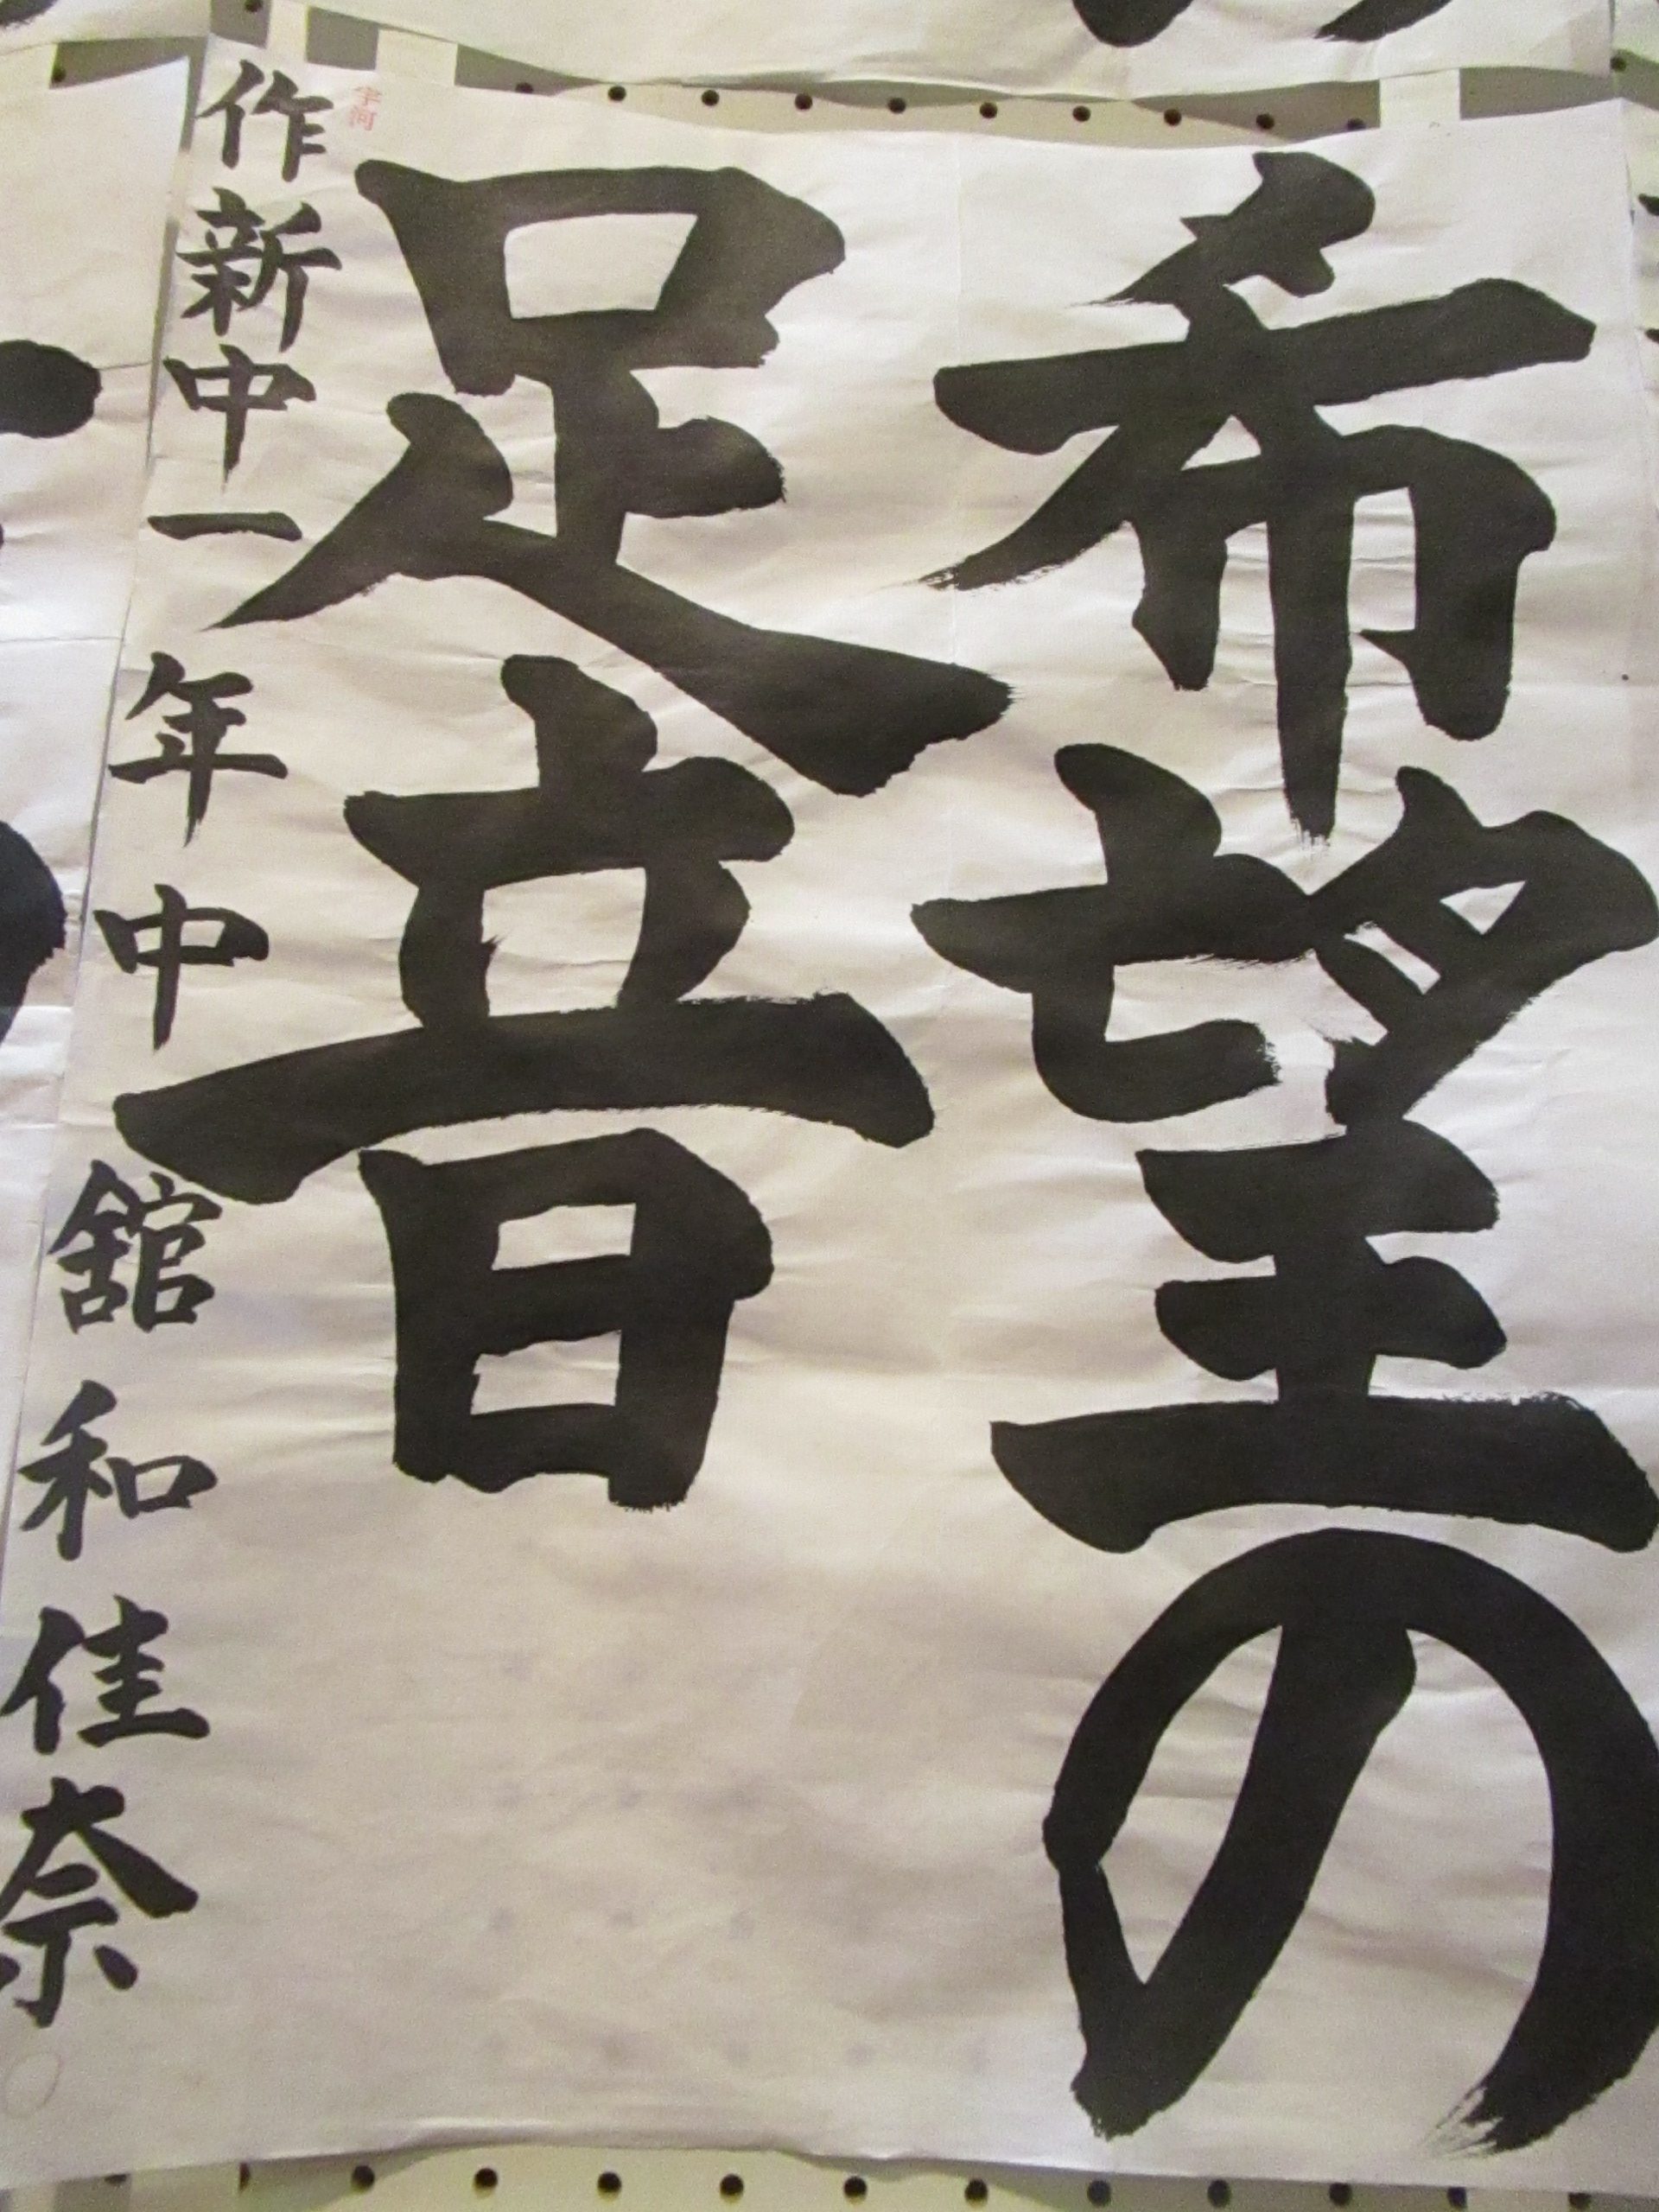 希望の
足音
作新中一年 中舘和佳奈
宇河